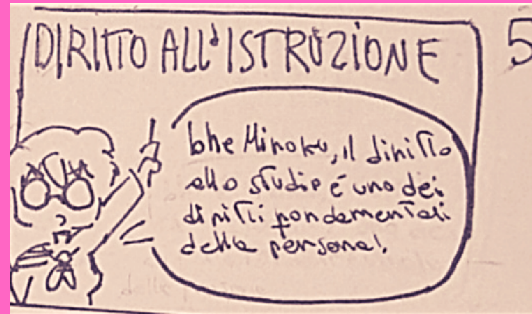 DIRITTO ALL'ISTRUZIONE
5
Minoku, il diritto
allo studio é uno dei
diritti fondamentali
della persona!.